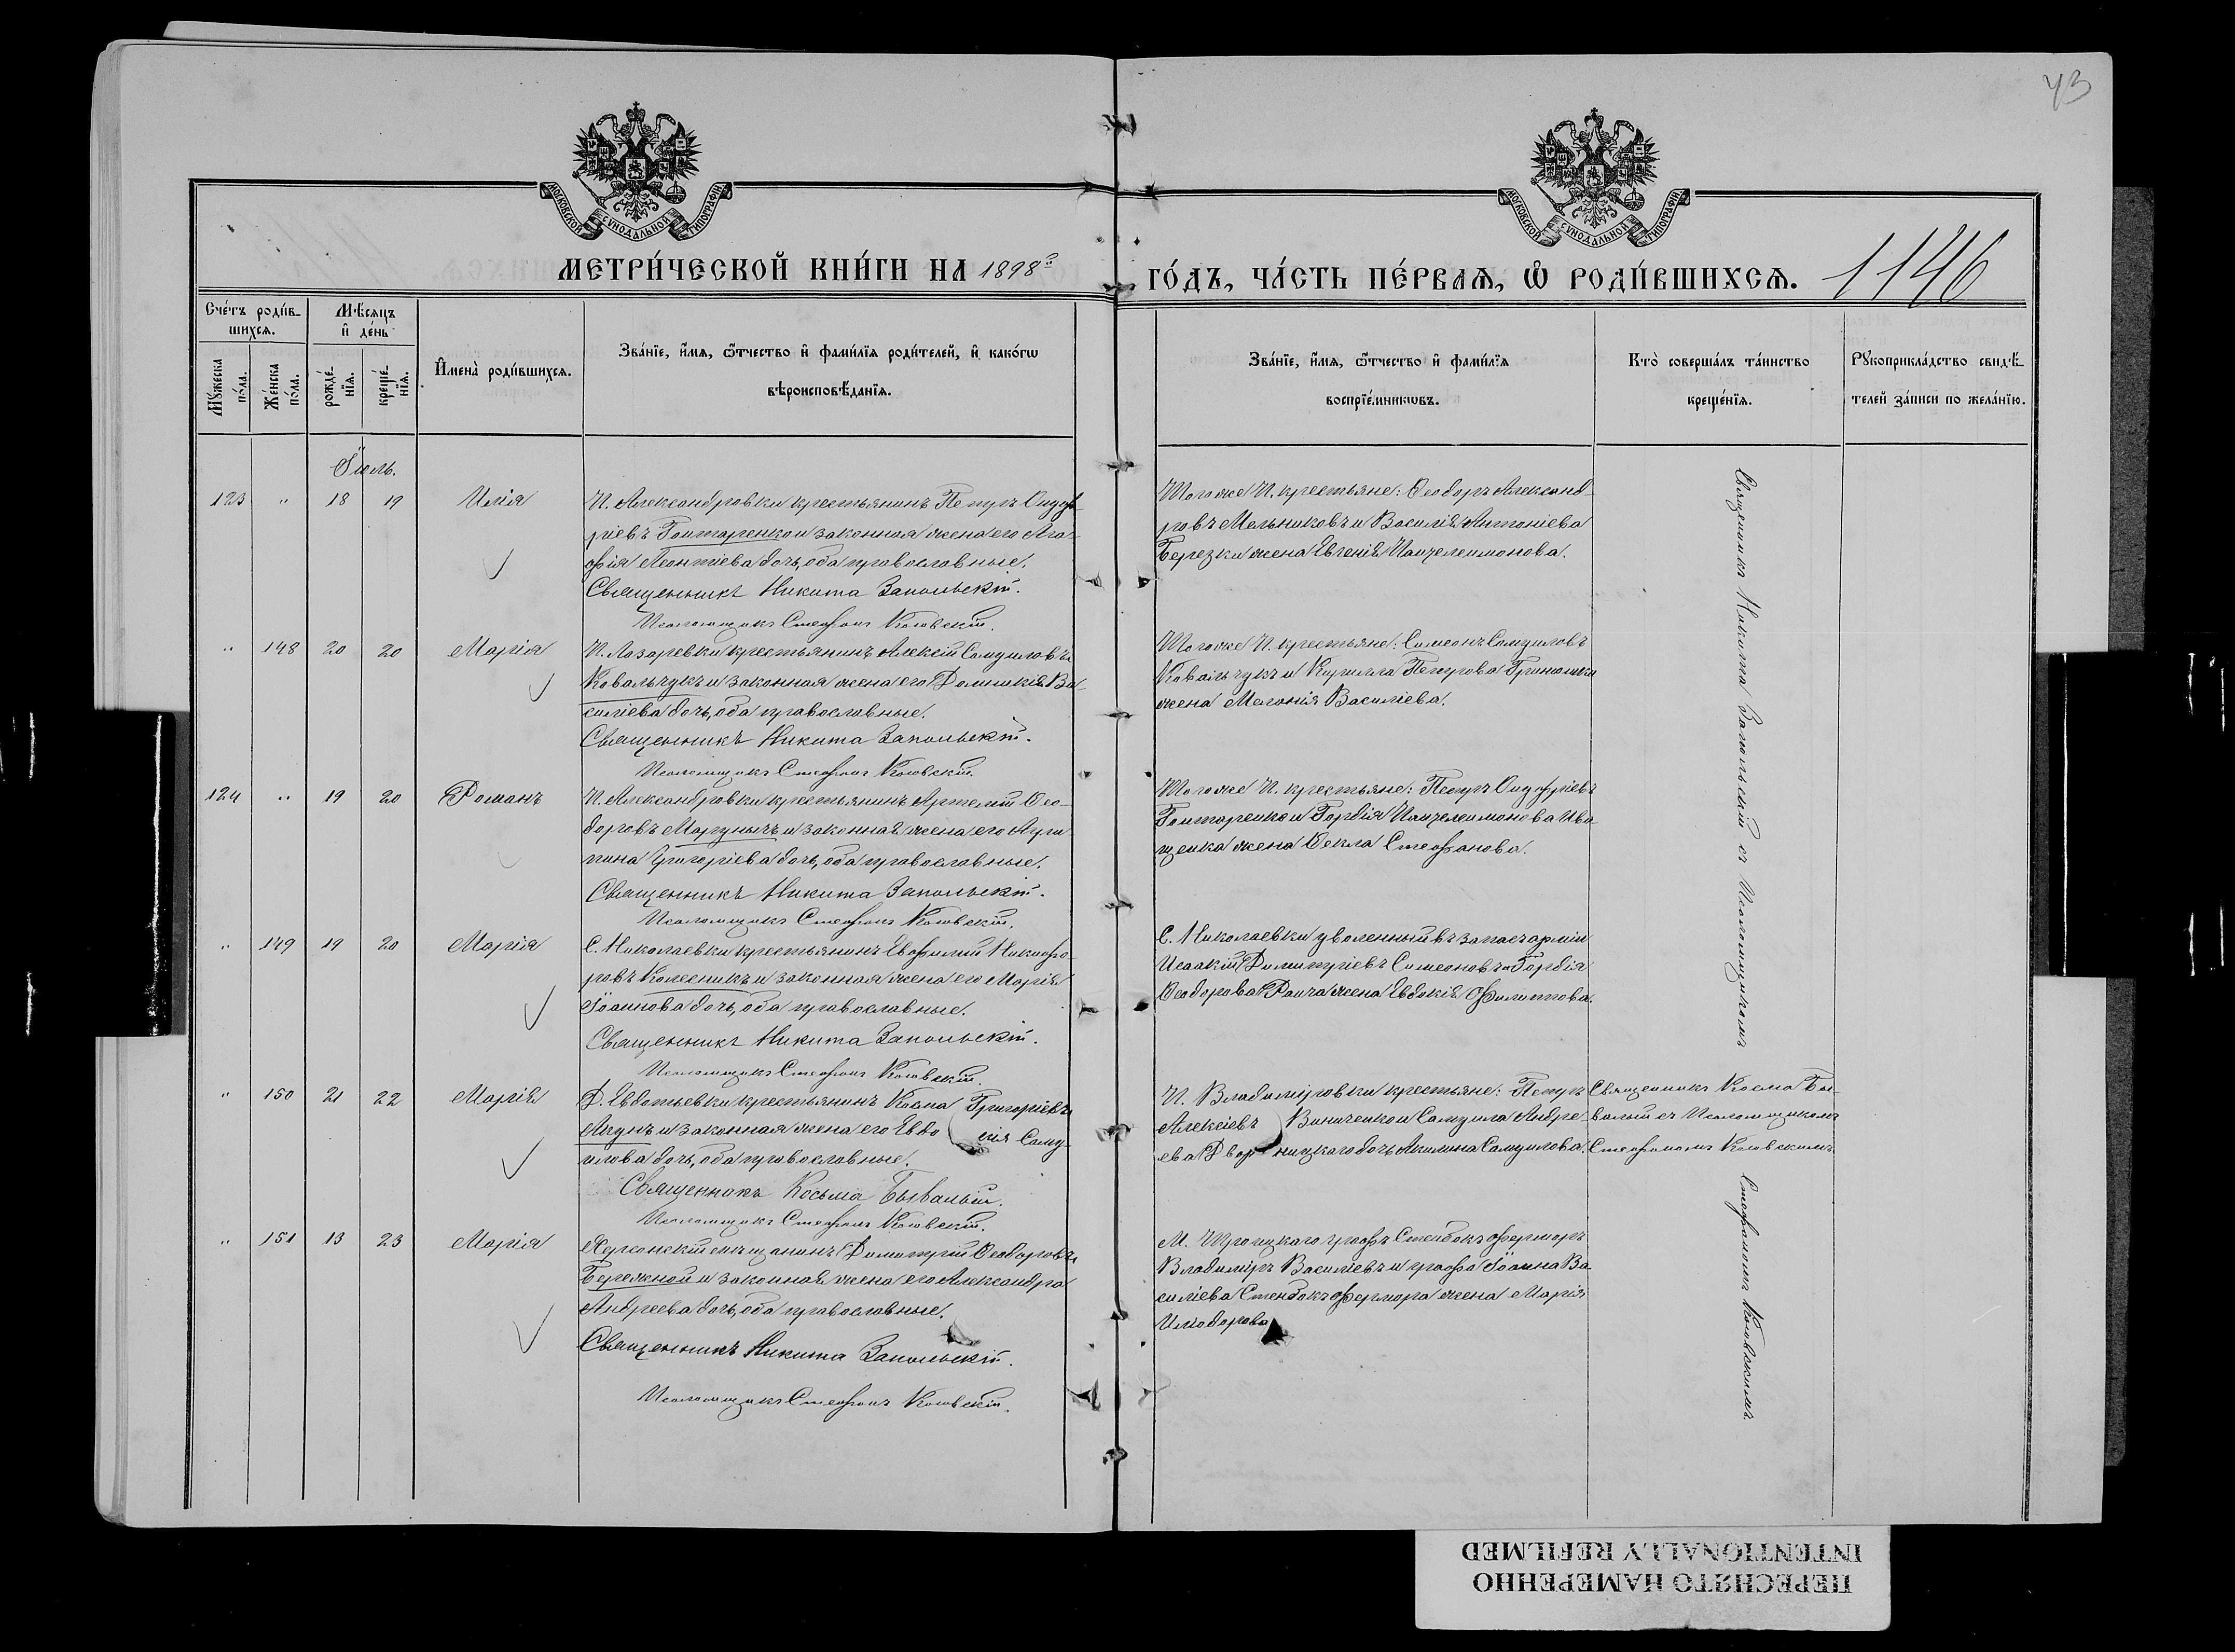 43
МОСКОВСКОЙ СѴНОДАЛЬНОЙ ТИПОГРАФІИ
МОСКОВСКОЙ СѴНОДАЛЬНОЙ ТИПОГРАФІИ
МЕТРИ́ЧЕСКОЙ КНИ́ГИ НА 1898й
ГО́ДЪ, ЧА́СТЬ ПЕ́РВАѦ, Ѽ РОДИ́ВШИХСѦ. 1146
Сче́тъ роди́в-
шихсѧ.
Мѣ́сяцъ
и҆ де́нь
Мꙋ́жеска
по́ла.
Же́нска
по́ла.
рожде́-
нїѧ.
креще́-
нїѧ.
И҆мена̀ роди́вшихсѧ.
Зва́нїе, и҆́мѧ, ѻ҆́тчество и҆ фами́лїѧ роди́телей, и҆ како́гѡ
вѣроисповѣ́данїѧ.
Зва́нїе, и҆́мѧ, ѻ҆́тчество и҆ фами́лїѧ
воспрїе́мникѡвъ.
Кто̀ соверша́лъ та́инство
креще́нїѧ.
Рꙋкоприкла́дство свидѣ́-
телей за́писи по жела́нїю.
Іюль.
123 " 18 19 Илія
П. Александровки крестьянинъ Петръ Онуф-
ріевъ Гонтаренко и законная жена его Ага-
фія Леонтіева дочь, оба православные.
Священникъ Никита Запольскій.
Псаломщикъ Стефанъ Коювскій.
Того же П. крестьяне: Ѳеодоръ Александ-
ровъ Мельниковъ и Василія Антоніева
Березки жена Евгенія Пантелеимонова.
" 148 20 20 Марія
П. Лазаревки крестьянинъ Алексій Самуиловъ
Ковальчукъ и законная жена его Домникія Ва-
силіева дочь, оба православные.
Священникъ Никита Запольскій.
Псаломщикъ Стефанъ Коювскій.
Того же П. крестьяне: Симеонъ Самуиловъ
Ковальчукъ и Кирилла Петрова
жена Меланія Василіева.
124 " 19 20 Романъ
П. Александровки крестьянинъ Артемій Ѳео-
доровъ и законная жена его Агри-
пина Григоріева дочь, оба православные.
Священникъ Никита Запольскій.
Псаломщикъ Стефанъ Коювскій.
Того же П. крестьяне: Петръ Онуфріевъ
Гонтаренко и Гордія Пантелеимонова Ива-
щенка жена Ѳекла Стефанова.
" 149 19 20 Марія
С. Николаевки крестьянинъ Евфимій Никифо-
ровъ Колесникъ и законная жена его Марія
Іоаннова дочь, оба православные.
Священникъ Никита Запольскій.
Псаломщикъ Стефанъ Коювскій.
С. Николаевки уволенный въ запасъ арміи
Исаакій Димитріевъ Симеоновъ и Гордія
Ѳеодорова жена Евдокія Филиппова.
" 150 21 22 Марія
Д. Евдотьевки крестьянинъ Косма Григоріевъ
и законная жена его Евдо кія Саму-
илова дочь, оба православные.
Священникъ Косьма Бывалый.
Псаломщикъ Стефанъ Коювскій.
П. Владиміровки крестьяне: Петръ
Алексіевъ Винниченко и Самуила Андре-
ева Двор ницкаго дочь Акилина Самуилова.
Священникъ Косма Бы-
валый съ Псаломщикомъ
Стефаномъ Коювскимъ.
" 151 13 23 Марія
Херсонскій мѣщанинъ Димитрій Ѳеодоровъ
Бережной и законная жена его Александра
Андреева дочь, оба православные.
Священникъ Никита Запольскій.
Псаломщикъ Стефанъ Коювскій.
М. Троицкаго графъ Стенбокъ Ферморъ
Владиміръ Василіевъ и графа Іоанна Ва-
силіева Стенбокъ Фермора жена Марія
Исидорова
Священникъ Никита Запольскій съ Псаломщикомъ
Стефаномъ Коювскимъ.
ПЕРЕСНЯТО НАМЕРЕННО
INTENTIONALLY REFILMED